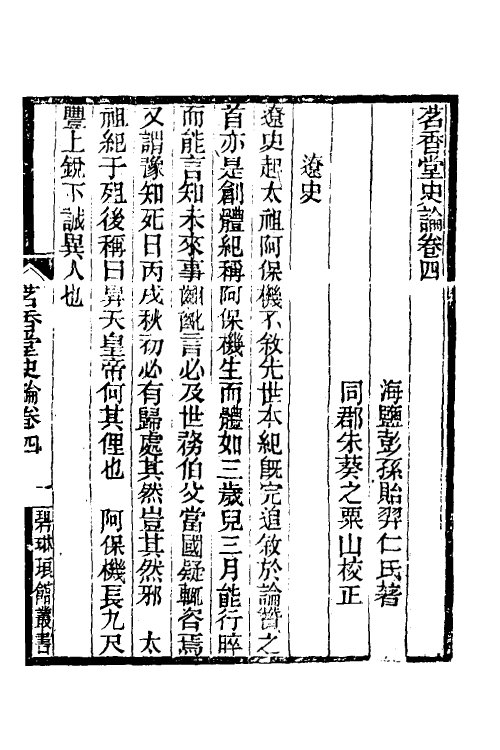 茗香堂史論卷四
海鹽彭孫貽羿仁氏著
同郡朱葵之粟山校正
遼史
遼史起太祖阿保機不敘先世本紀旣完追敘於論贊之
首亦是創體紀稱阿保機生而體如三歲兒三月能行晬
而能言知未來事齠齔言必及世務伯父當國疑輒咨焉
又謂豫知死日丙戌秋初必有歸處其然豈其然邪　太
祖紀于殂後稱曰昇天皇帝何其俚也　阿保機長九尺
豐上銳下誠異人也
茗香堂史論卷四
一
碧琳琅館叢書